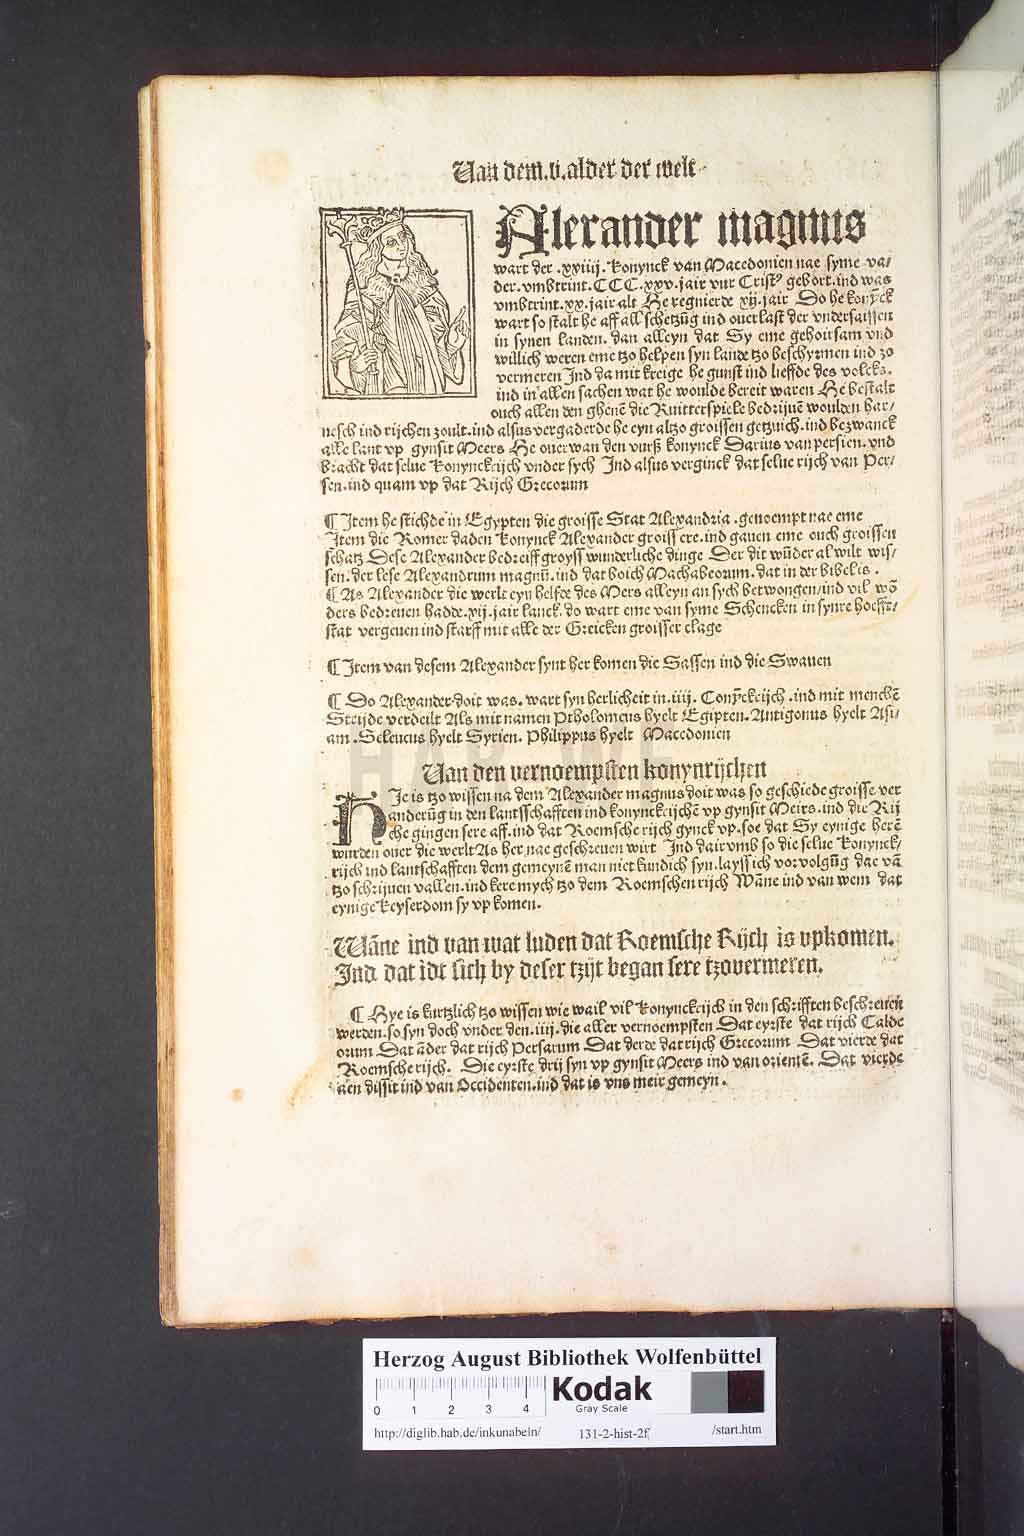 Uan dem.v.alder der welt
Alexander magnus
wart der .xxiiij. konynck van Macedonien nae syme va/
der. vmbtrint. CCC.xxv. jair vur Cristꝰ gebort. ind was
vmbtrint.xx.jair alt He regnierde xij. jair Do he konȳck
wart so stalt he aff all schetzūg ind ouerlast der vndersaissen
in synen landen. dan alleyn dat Sy eme gehoirsam vnd
willich weren eme tzo helpen syn lande tzo beschyrmen ind zo
vermeren Ind da mit kreige he gunst ind lieffde des volcks.
ind in allen sachen wat he woulde bereit waren He bestalt
ouch allen den ghenē die Ruitterspiele bedrijuē woulden har/
nesch ind rijchen zoult. ind alsus vergaderde he eyn altzo groissen getzuich. ind bezwanck
alle lant vp gynsit Meers He ouerwan den vurß konynck Darius van persien. vnd
bracht dat selue konynckrijch vnder sych Ind alsus verginck dat selue rijch van Per/
sen. ind quam vp dat Rijch Grecorum
¶ Item he stichde in Egypten die groisse Stat Alexandria . genoempt nae eme
Item die Romer daden konynck Alexander groiss ere. ind gauen eme ouch groissen
schatz Dese Alexander bedreiff groyss wunderliche dinge Der dit wūder al wilt wis/
sen. der lese Alexandrum magnū. ind dat boich Machabeorum. dat in der bibel is .
¶ As Alexander die werlt eyn helfce des Mers alleyn an sych betwongen/ind vil wō
ders bedreuen hadde. xij. jair lanck. do wart eme van syme Schencken in synre hoefft/
stat vergeuen ind starff mit alle der Greicken groisser clage
¶ Item van desem Alexander synt her komen die Sassen ind die Swauen
¶ Do Alexander doit was. wart syn herlicheit in. iiij. Conȳckrijch . ind mit menchē
Strijde verdeilt Als mit namen Ptholomeus hyelt Egipten. Antigonus hyelt Asi/
am . Seleucus hyelt Syrien. Philippus hyelt Macedonien
Uan den vernoempsten konynrijchen
HJe is tzo wissen na dem Alexander magnus doit was so geschiede groisse ver
anderūg in den lantsschafften ind konynckrijchē vp gynsit Meirs. ind die Rij
che gingen sere aff. ind dat Roemsche rijch gynck vp. soe dat Sy eynige herē
wurden ouer die werlt As her nae geschreuen wirt Ind dair vmb so die selue konynck/
rijch ind lantschafften dem gemeynē man niet kundich syn. layss ich vor volgūg dae vā
tzo schrijuen vallen. ind kere mych tzo dem Roemschen rijch Wāne ind van wem dat
eynige keyserdom sy vp komen.
Wāne ind van wat luden dat Roemsche Rijch is vpkomen.
Ind dat idt sich by deser tzijt began sere tzovermeren.
¶ Hye is kurtzlich tzo wissen wie wail vil konynckrijch in den schrifften beschreuen
werden. so syn doch vnder den. iiij. die aller vernoempsten Dat eyrste dat rijch Calde
orum Dat āder dat rijch Persarum Dat derde dat rijch Grecorum Dat vierde dat
Roemsche rijch. Die eyrste drij syn vp gynsit Meers ind van orientē. Dat vierde
aen dissit ind van Occidenten. ind dat is vns meir gemeyn .
Herzog August Bibliothek Wolfenbüttel
0 1 2 3 4
Kodak
Gray Scale
http://diglib.hab.de/inkunabeln/ 131-2-hist-2f /start.htm